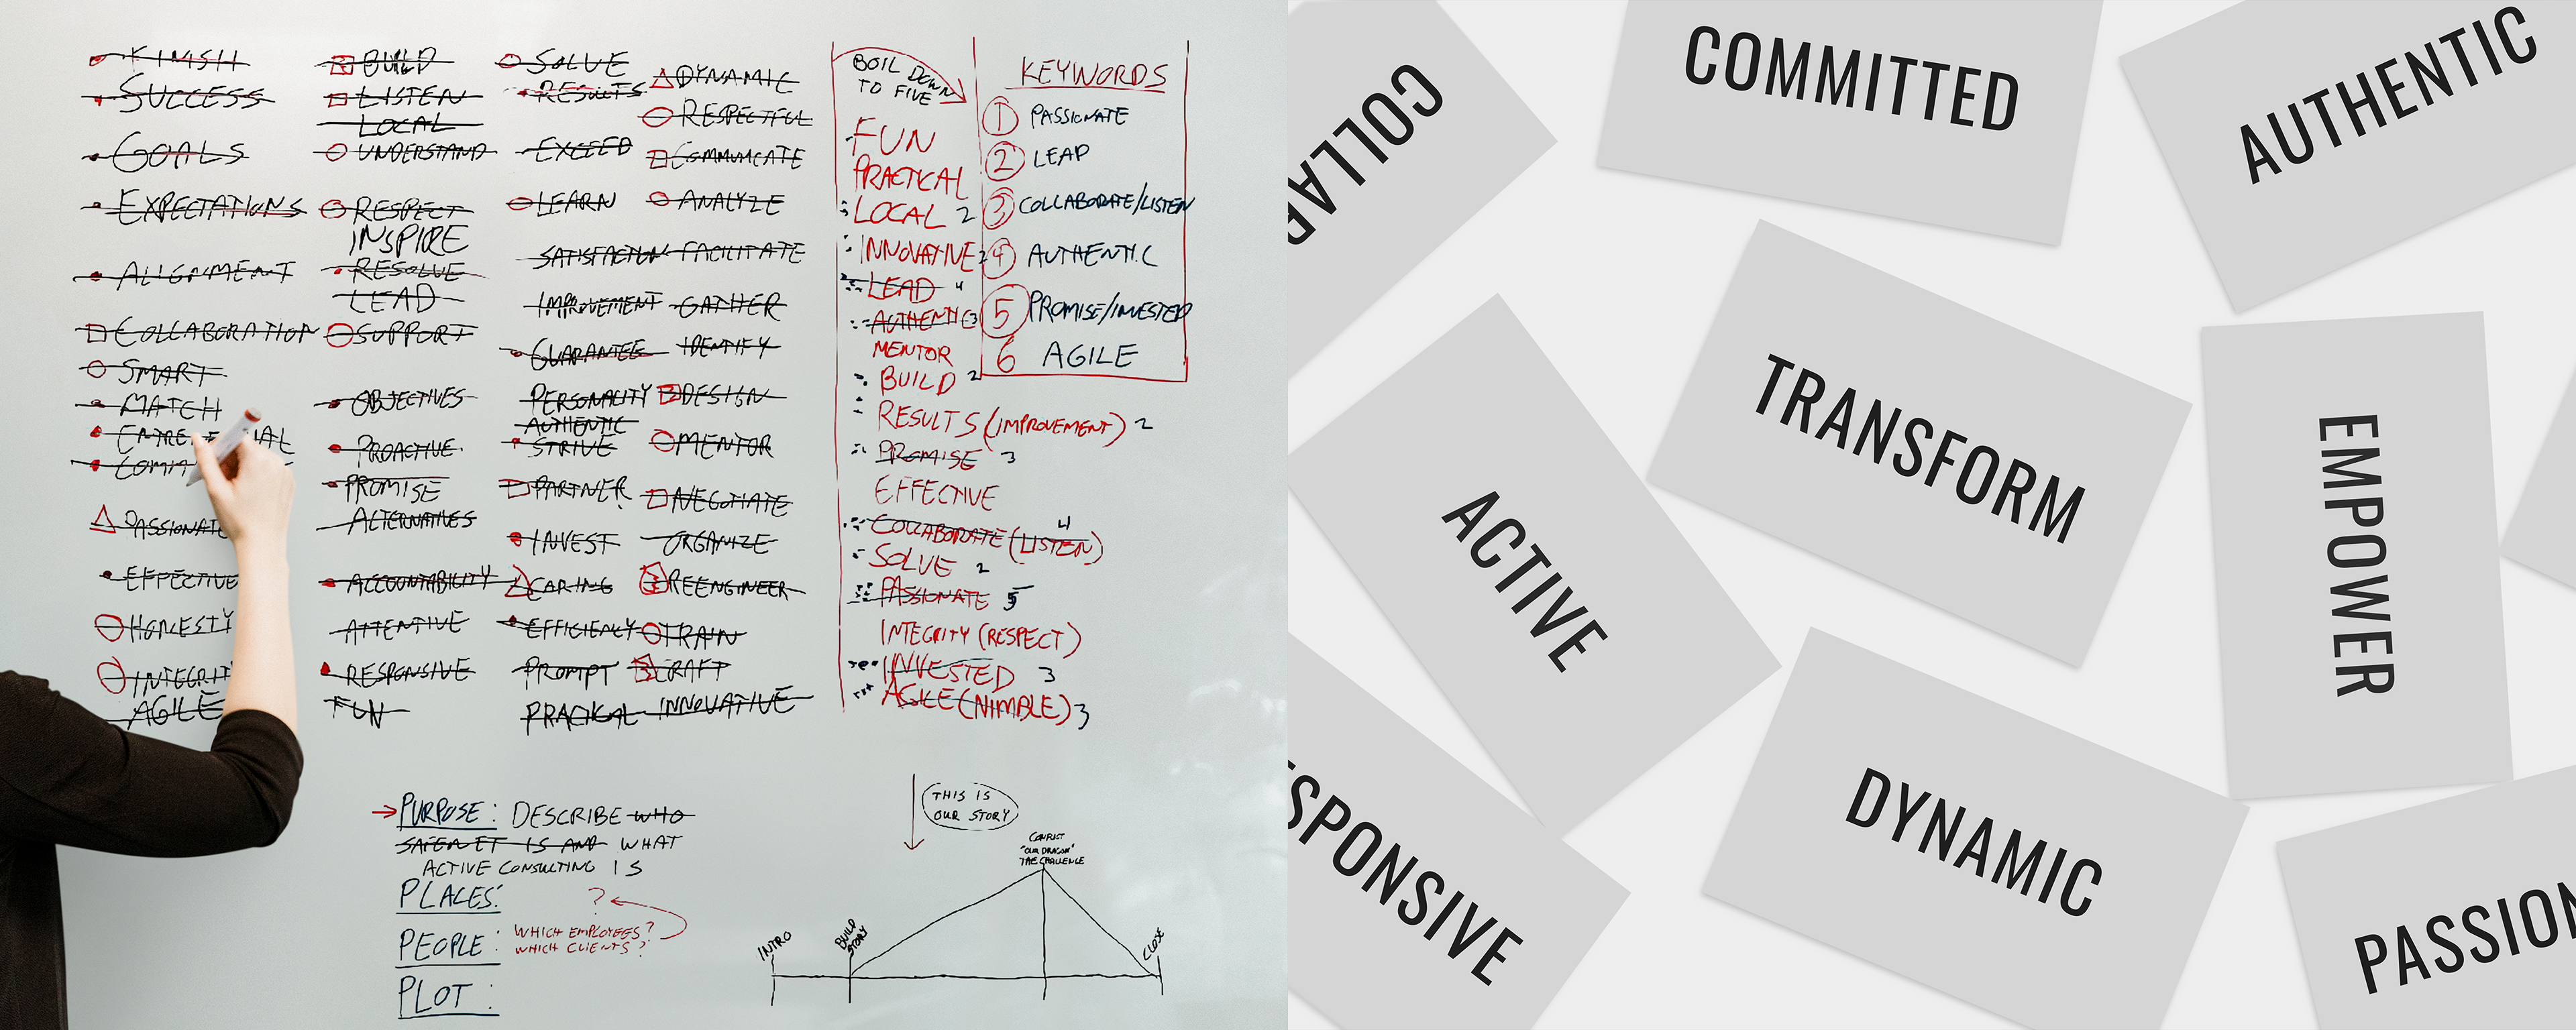 FINISH
SUCCESS
GOALS
EXPECTATIONS
ALIGNMENT
COLLABORATION
SMART
MATCH
PASSIONATE
EFFECTIVE
HONESTY
INTEGRIT
AGILE
BUILD
LISTEN
LOCAL
UNDERSTAND
RESPECT
INSPIRE
RESOLVE
LEAD
SUPPORT
OBJECTIVES
PROACTIVE
PROMISE
ALTERNATIVES
ACCOUNTABILITY
ATTENTIVE
RESPONSIVE
FUN
SOLVE
RESULTS
EXCEED
LEARN
SATISFACTION
IMPROVEMENT
GUARANTEE
PERSONALITY
AUTHENTIC
STRIVE
PARTNER
INVEST
CARING
EFFICIENCY
PROMPT
PRACICAL
DYNAMIC
RESPECTFUL
COMMUNICATE
ANALYZE
FACILITATE
GATHER
IDENTIFY
DESIGN
MENTOR
NEGOTIATE
ORGANIZE
REENGINEER
TRAIN
CRAFT
INNOVATIVE
BOIL DOWN
TO FIVE
FUN
PRACTICAL
LOCAL 2
INNOVATIVE 2
LEAD 4
AUTHENTIC 3
MENTOR
BUILD 2
RESULTS (IMPROVEMENT) 2
PROMISE 3
EFFECTIVE
COLLABORATE (LISTEN) 4
SOLVE 2
PASSIONATE 5
INTEGRITY (RESPECT)
INVESTED 3
AGILE (NIMBLE) 3
KEYWORDS
1 PASSIONATE
2 LEAP
3 COLLABORATE/LISTEN
4 AUTHENTIC
5 PROMISE/INVESTED
6 AGILE
PURPOSE: DESCRIBE WHO
IS AND WHAT
ACTIVE CONSULTING IS
PLACES:
?
PEOPLE: WHICH EMPLOYEES?
WHICH CLIENTS?
PLOT:
THIS IS
OUR STORY
CONFLICT
"OUR DRAGON"
THE CHALLENGE
INTRO
BUILD
STORY
CLOSE
COLLAB
COMMITTED
AUTHENTIC
TRANSFORM
ACTIVE
EMPOWER
SPONSIVE
DYNAMIC
PASSION